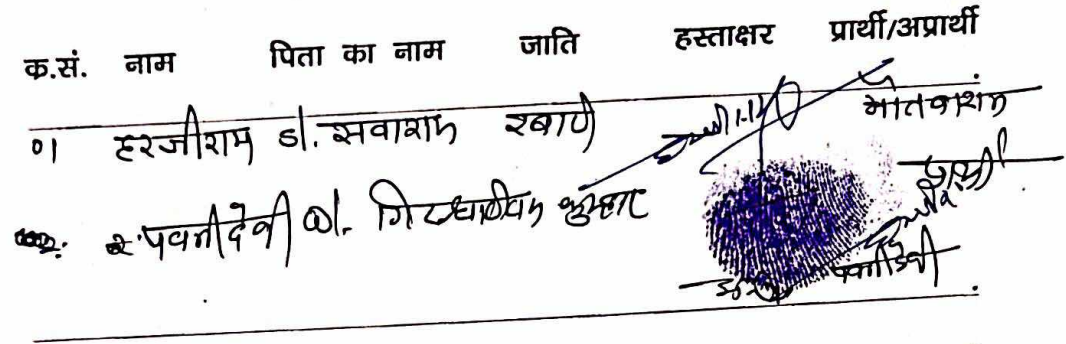 क.सं. नाम पिता का नाम जाति हस्ताक्षर प्रार्थी/अप्रार्थी
01 हरजीराम S/. सवाराम रबारी
2. पवनीदेवी W/. गिरधारीराम कुम्हार प्रार्थी
पवनीदेवी